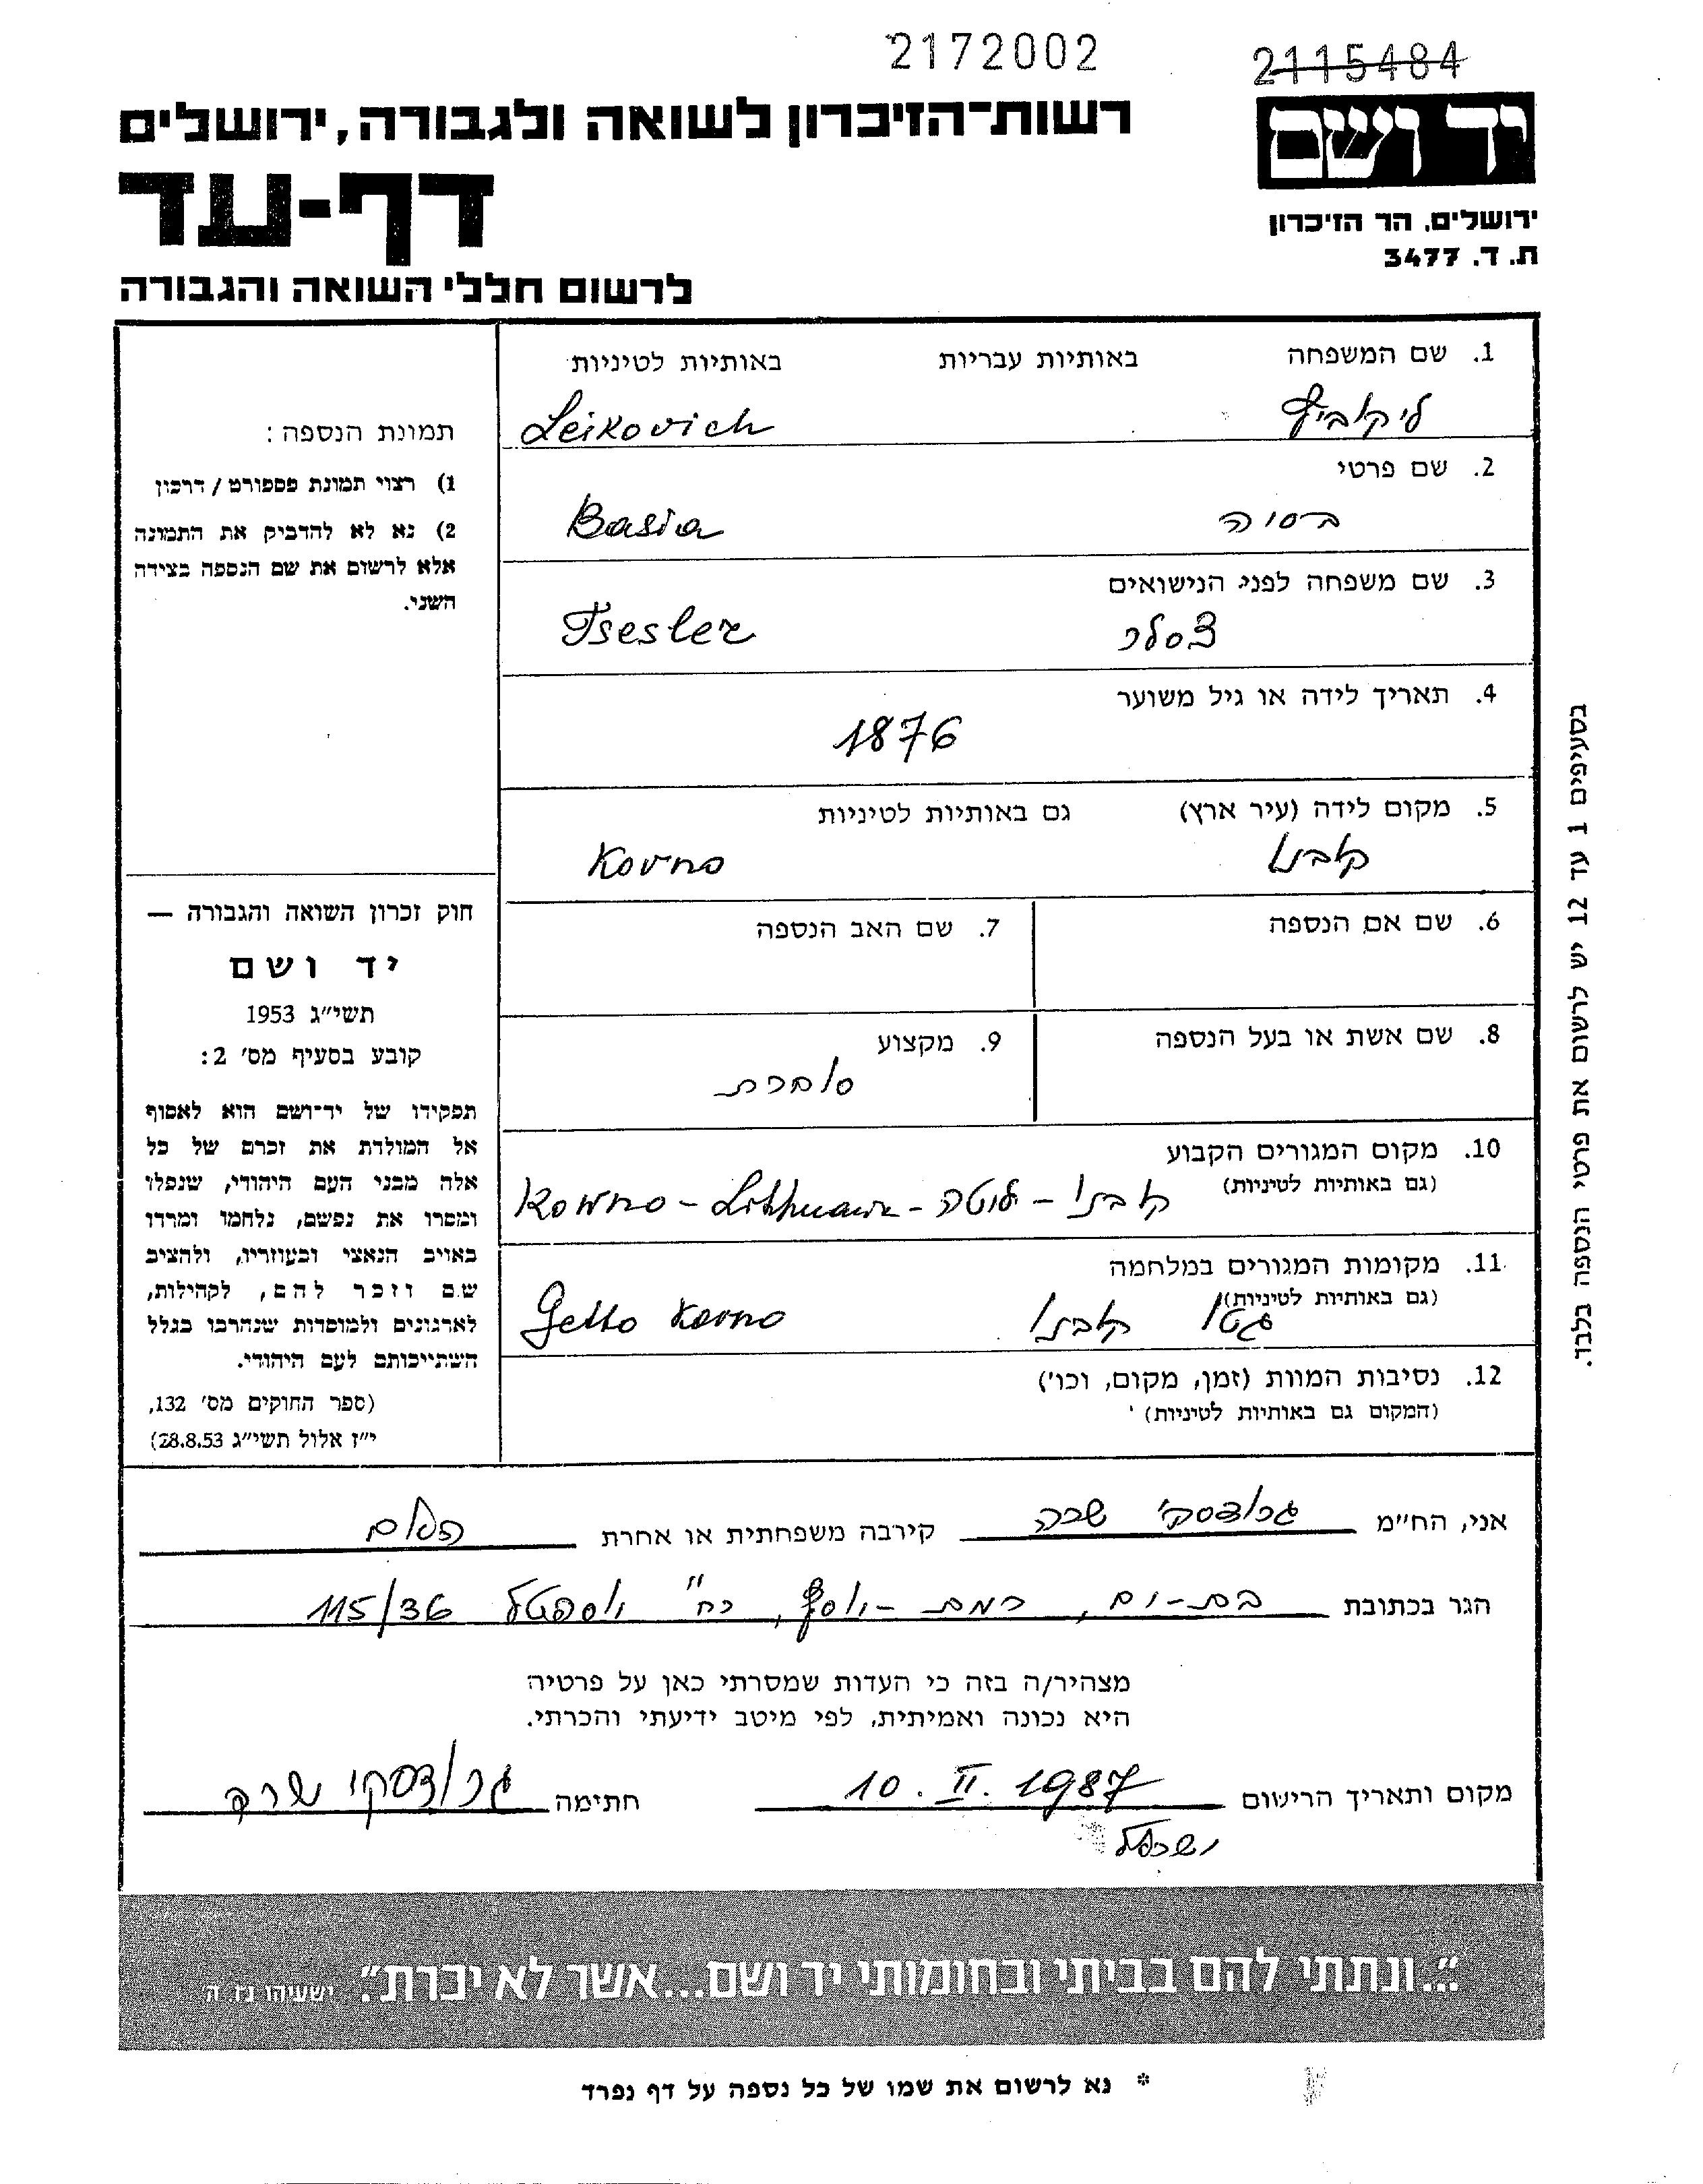 2172002
2115484
יד ושם
רשות־הזיכרון לשואה ולגבורה, ירושלים
דף-עד
לרשום חללי השואה והגבורה
ירושלים, הר הזיכרון
ת. ד. 3477
1. שם המשפחה באותיות עבריות באותיות לטיניות
ליקוביץ Leikovich
2. שם פרטי
בסיה Basia
3. שם משפחה לפני הנישואים
צסלר Tsesler
4. תאריך לידה או גיל משוער
1876
5. מקום לידה (עיר ארץ) גם באותיות לטיניות
קובנו Kovno
6. שם אם הנספה 7. שם האב הנספה
8. שם אשת או בעל הנספה 9. מקצוע
סוחרת
10. מקום המגורים הקבוע
(גם באותיות לטיניות)
קובנו - ליטה - Kowno -
11. מקומות המגורים במלחמה
(גם באותיות לטיניות)
גטו קובנו Getto Kovno
12. נסיבות המוות (זמן, מקום, וכו')
(המקום גם באותיות לטיניות)
תמונת הנספה:
1) רצוי תמונת פספורט / דרכון
2) נא לא להדביק את התמונה
אלא לרשום את שם הנספה בצידה
השני.
חוק זכרון השואה והגבורה —
יד ושם
תשי״ג 1953
קובע בסעיף מס' 2:
תפקידו של יד־ושם הוא לאסוף
אל המולדת את זכרם של כל
אלה מבני העם היהודי, שנפלו
ומסרו את נפשם, נלחמו ומרדו
באויב הנאצי ובעוזריו, ולהציב
שם וזכר להם, לקהילות,
לארגונים ולמוסדות שנהרבו בגלל
השתייכותם לעם היהודי.
(ספר החוקים מס' 132,
י״ז אלול תשי״ג 28.8.53)
בסעיפים 1 עד 12 יש לרשום את פרטי הנספה בלבד.
אני, הח״מ גרודסקי שרה קירבה משפחתית או אחרת
הגר בכתובת בת-ים, רמת-יוסף, רח' 115/36
מצהיר/ה בזה כי העדות שמסרתי כאן על פרטיה
היא נכונה ואמיתית, לפי מיטב ידיעתי והכרתי.
מקום ותאריך הרישום 10. II. 1987 חתימה גרודסקי שרה
ישראל
״...ונתתי להם בביתי ובחומותי יד ושם...אשר לא יכרת״. ישעיהו נו, ה
* נא לרשום את שמו של כל נספה על דף נפרד